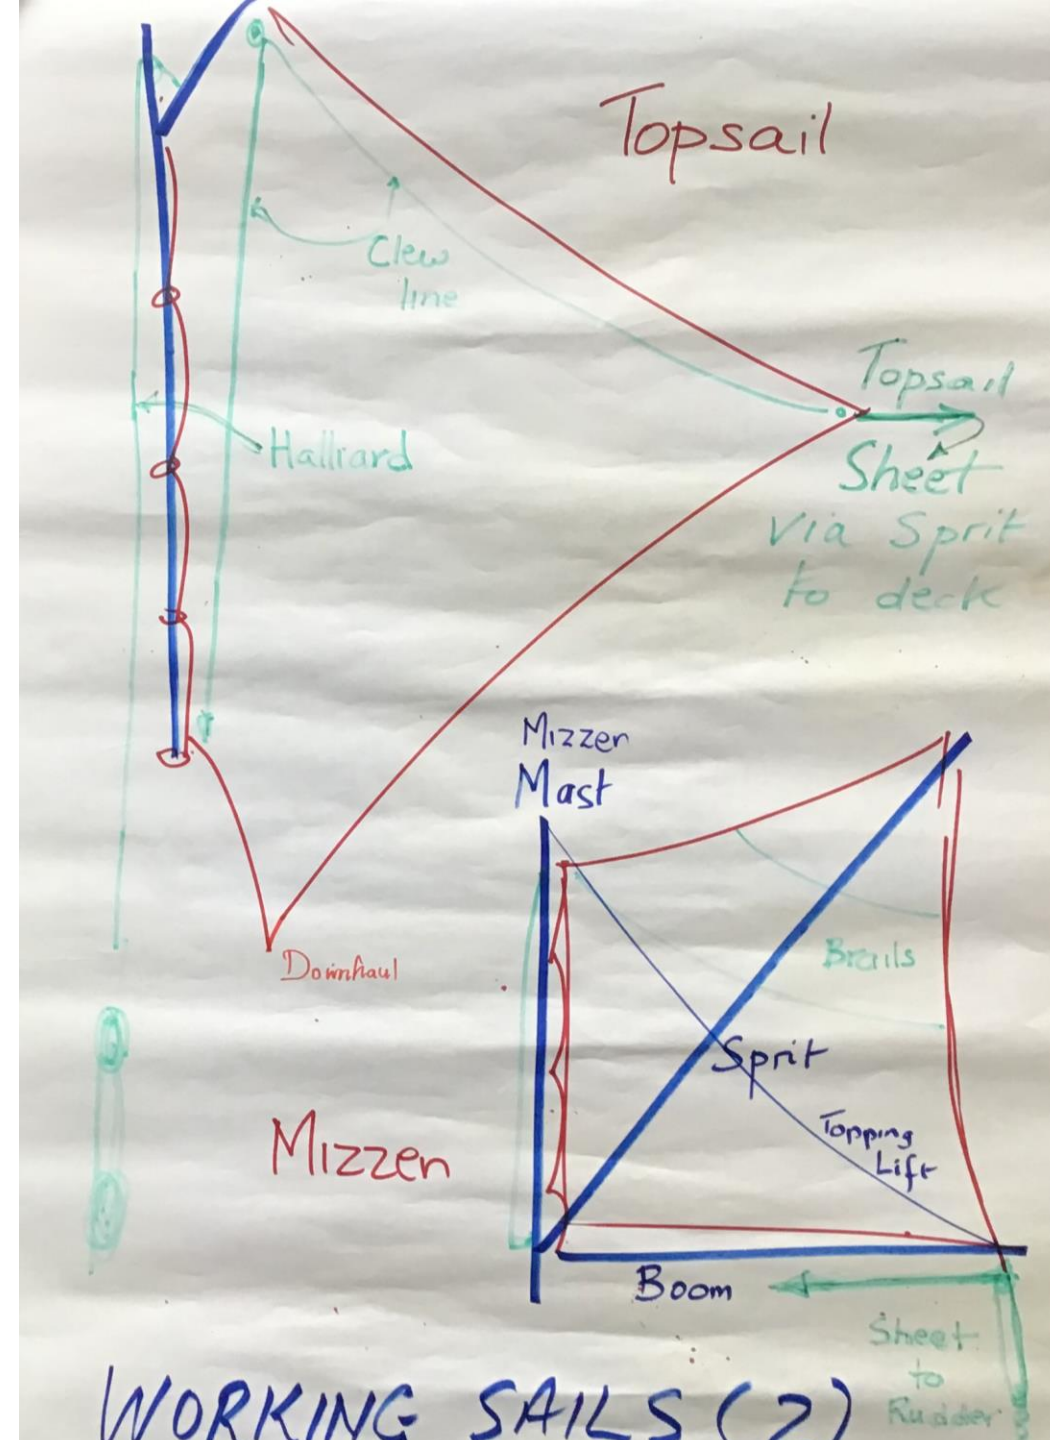 Topsail
Clew
line
Topsail
Sheet
Via Sprit
to deck
Halliard
Mizzen
Mast
Downhaul
Brails
Sprit
Topping
Lift
Mizzen
Boom
Sheet
to
Rudder
WORKING SAILS (2)